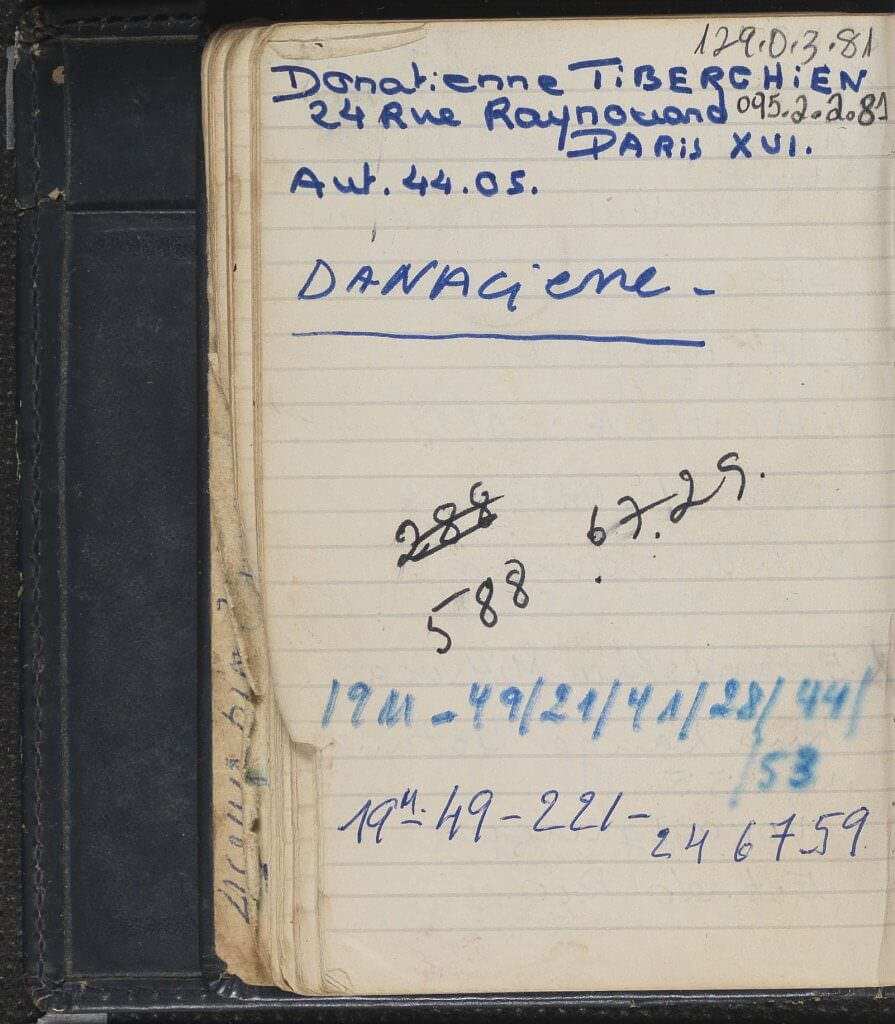 129.0.3.81
Donatienne TiBERGHiEN
24 Rue Raynouard 095.2.2.81
PARis XVI.
Aut. 44.05.
DANACienne -
288 67.29.
588
19 M - 49/21/41/28/44/
/53
19M. - 49 - 221 -
24 67 59